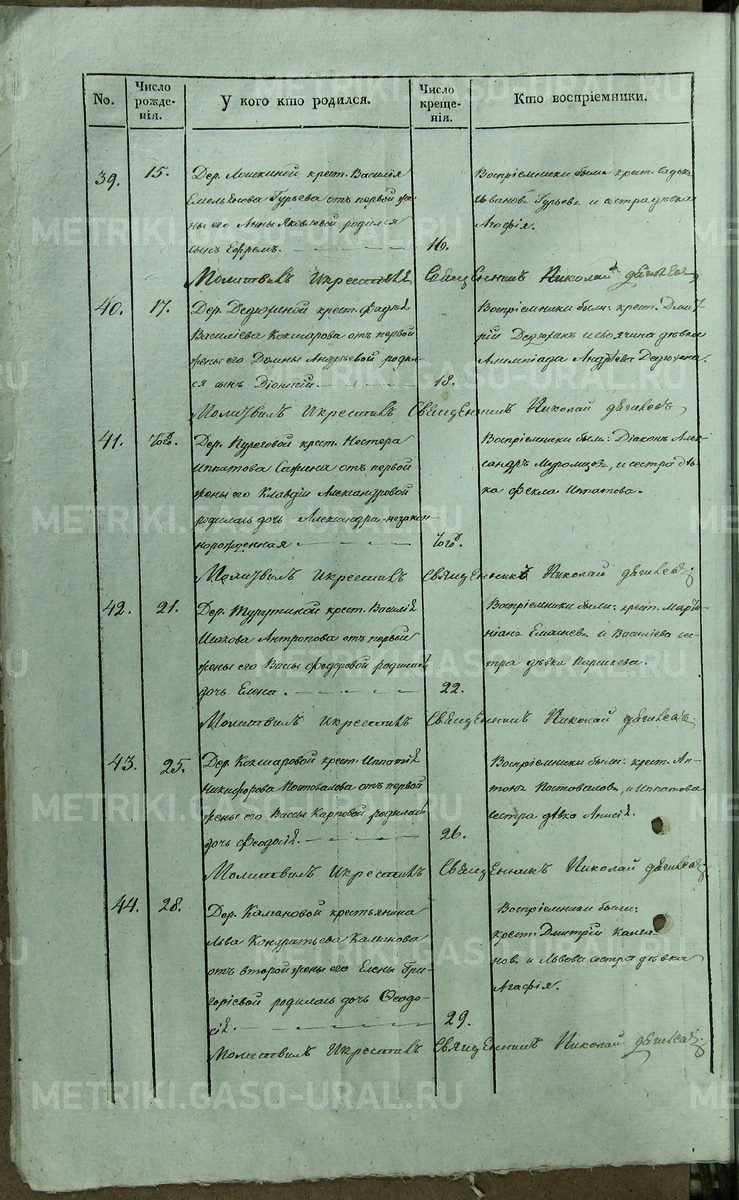 No.
Число рожде-
нія.
У кого кто родился.
Число
креще-
нія.
Кто воспріемники.
39. 15. Дер. Лошкиной крест. Василія
Емельянова Гурьева отъ первой же-
ны его Анны Яковлевой родился
сынъ Ефремъ. 16.
Воспріемники были крест.
Ивановъ Гурьевъ и сестра дѣвка
Агафія.
Молитвилъ и крестилъ Священникъ Николай
40. 17. Дер. Дедюхиной крест.
Василіева Кокшарова отъ первой
жены его Домны Андреевой родил-
ся сынъ Діонисій. 18.
Воспріемники были: крест. Дмит-
рій Дедюхинъ и своячина дѣвка
Алимпіада Андреева Дедюхина.
Молитвилъ и крестилъ Священникъ Николай
41. Дер. крест. Нестера
Иппатова Сажина отъ первой
жены его Клавдіи Александровой
родилась дочь Александра незакон-
норожденная
Воспріемники были: Діаконъ Алек-
сандръ Муромцовъ, и сестра дѣв-
ка Фекла Иппатова.
Молитвилъ и крестилъ Священникъ Николай
42. 21. Дер. крест. Василія
Исакова Антропова отъ первой
жены его Вассы Федоровой родилась
дочь Елена. 22.
Воспріемники были: крест.
и Василіева се-
стра дѣвка
Молитвилъ и крестилъ Священникъ Николай
43. 25. Дер. Кокшаровой крест. Иппатія
Никифорова Постовалова отъ первой
жены его Вассы Карповой родилась
дочь Феодосія. 26.
Воспріемники были: крест. Ан-
тонъ Постоваловъ, и Иппатова
сестра дѣвка Анисія.
Молитвилъ и крестилъ Священникъ Николай
44. 28. Дер. Калгановой крестьянина
Льва Кондратьева Калганова
отъ второй жены его Елены Гри-
горіевой родилась дочь Ѳеодо-
сія. 29.
Воспріемники были:
крест. Дмитрій Калга-
новъ и Львова сестра дѣвка
Агафія.
Молитвилъ и крестилъ Священникъ Николай
METRIKI.GASO-URAL.RU